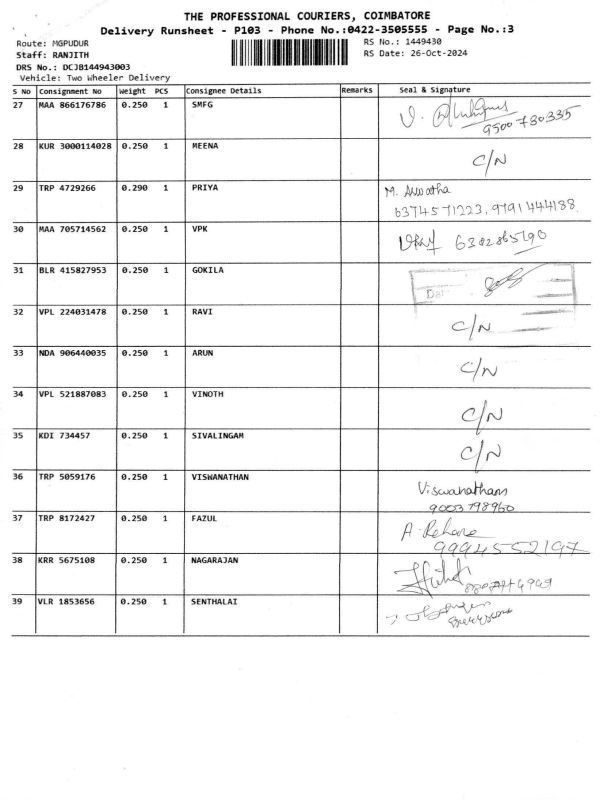 THE PROFESSIONAL COURIERS, COIMBATORE
Delivery Runsheet - P103 - Phone No.:0422-3505555 - Page No.:3
Route: MGPUDUR
RS No.: 1449430
Staff: RANJITH
RS Date: 26-Oct-2024
DRS No.: DCJB144943003
Vehicle: Two Wheeler Delivery
S No Consignment No Weight PCS Consignee Details Remarks Seal & Signature
27 MAA 866176786 0.250 1 SMFG
9500730335
28 KUR 3000114028 0.250 1 MEENA C/N
29 TRP 4729266 0.290 1 PRIYA M. Aswatha
6374571223, 9791444188
30 MAA 705714562 0.250 1 VPK 6382865190
31 BLR 415827953 0.250 1 GOKILA
32 VPL 224031478 0.250 1 RAVI C/N
33 NDA 906440035 0.250 1 ARUN C/N
34 VPL 521887083 0.250 1 VINOTH C/N
35 KDI 734457 0.250 1 SIVALINGAM C/N
36 TRP 5059176 0.250 1 VISWANATHAN Viswanathan
9003798960
37 TRP 8172427 0.250 1 FAZUL A. Rehana
9994552197
38 KRR 5675108 0.250 1 NAGARAJAN
39 VLR 1853656 0.250 1 SENTHALAI